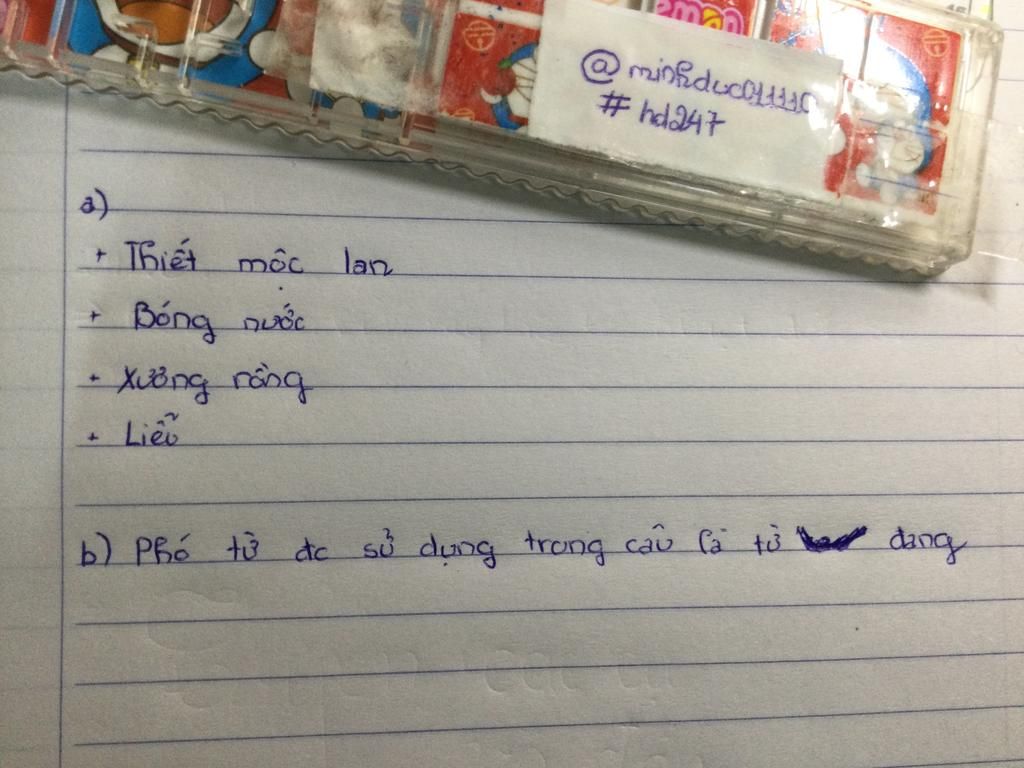 @ minhduc011110
# hd247
a)
+ Thiết mộc lan
+ Bóng nước
+ Xương rồng
+ Liễu
b) Phó từ đc sử dụng trong câu là từ đang